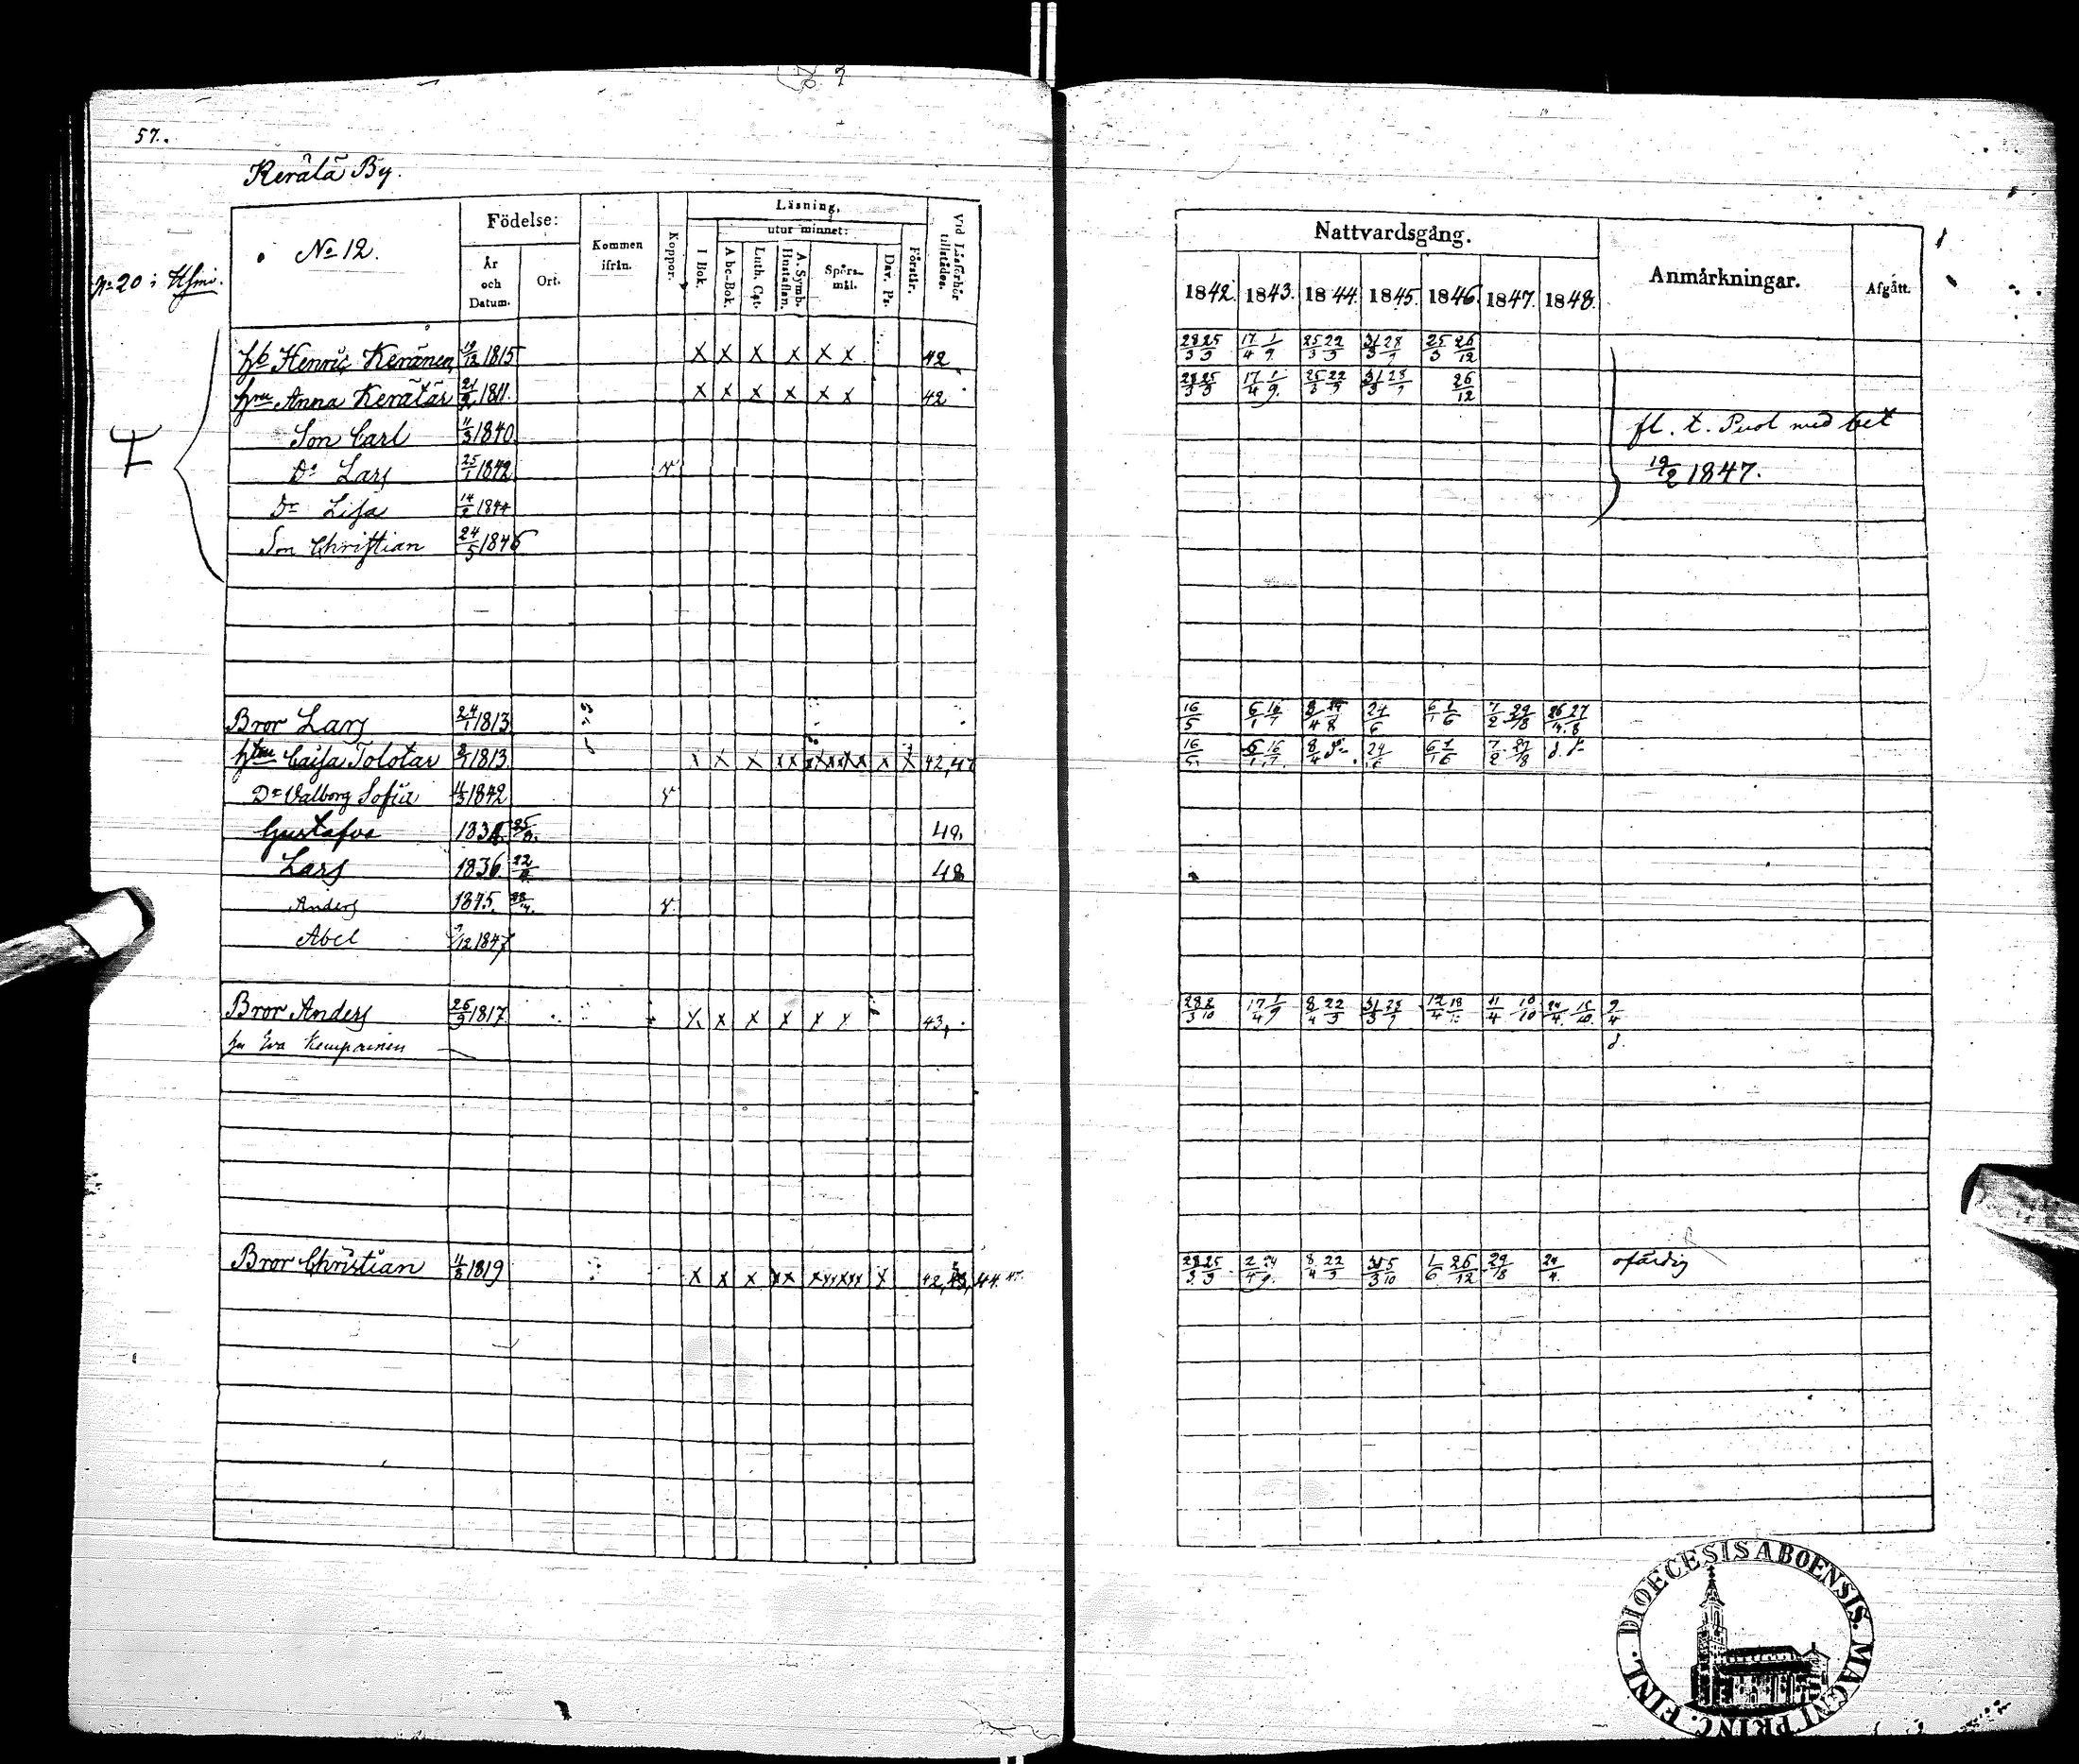 57.
Kerälä By.
No 20 i Hfmi.
No 12.
Födelse:
År och Datum.
Ort.
Kommen ifrån.
Koppor.
Läsning,
utur minnet:
I Bok.
Abc-Bok.
Luth. Cat.
A. Symb. Hustaflan.
Spörs-mål.
Dav. Ps.
Förstår.
Vid Läsförhör tillstådes.
Nattvardsgång.
1842. 1843. 1844. 1845. 1846. 1847. 1848.
Anmärkningar.
Afgått.
Hb Henric Keränen 19/12 1815 X X X X X X 42 28/3 25/9 17/4 1/9 25/3 22/9 31/3 28/9 25/3 26/12
Hru Anna Kerätär 1811. X X X X X X 42 28/3 25/9 17/4 1/9 25/3 22/9 31/3 28/9 26/12
Son Carl 11/3 1840 fl. t. Puol med bet
Do Lars 25/1 1842 v 19/2 1847.
Dr Lisa 14/2 1844
Son Christian 24/5 1846
Bror Lars 24/1 1813 16/5 6/1 16/7 8/4 24/6 6/1 1/6 7/2 29/8
Hru Caisa Tolotar 1813 x x x x x x x x x x 42,47 16/5 6/1 16/7 8/4 24/6 6/1 1/6 7/2 29/8
Dr Valborg Sofia 1842 v
Gustafva 48.
Lars 1836 48
Anders 1845. v.
Abel 1847
Bror Anders 26/9 1817 X X X X X X 43, 28/3 2/10 17/4 1/9 8/4 22/9 31/3 28/9 12/4 18/10 11/4 10/10 24/4 15/10 9/4
hu Eva Kemppainen
Bror Christian 11/8 1819 X X X XX XXXXXX X 42,43,44. 28/3 25/9 2/4 24/9 8/4 22/9 31/3 5/10 1/6 26/12 29/8 24/4 ofärdig
FINL. DIOECESIS ABOENSIS. MAGNI PRINC.